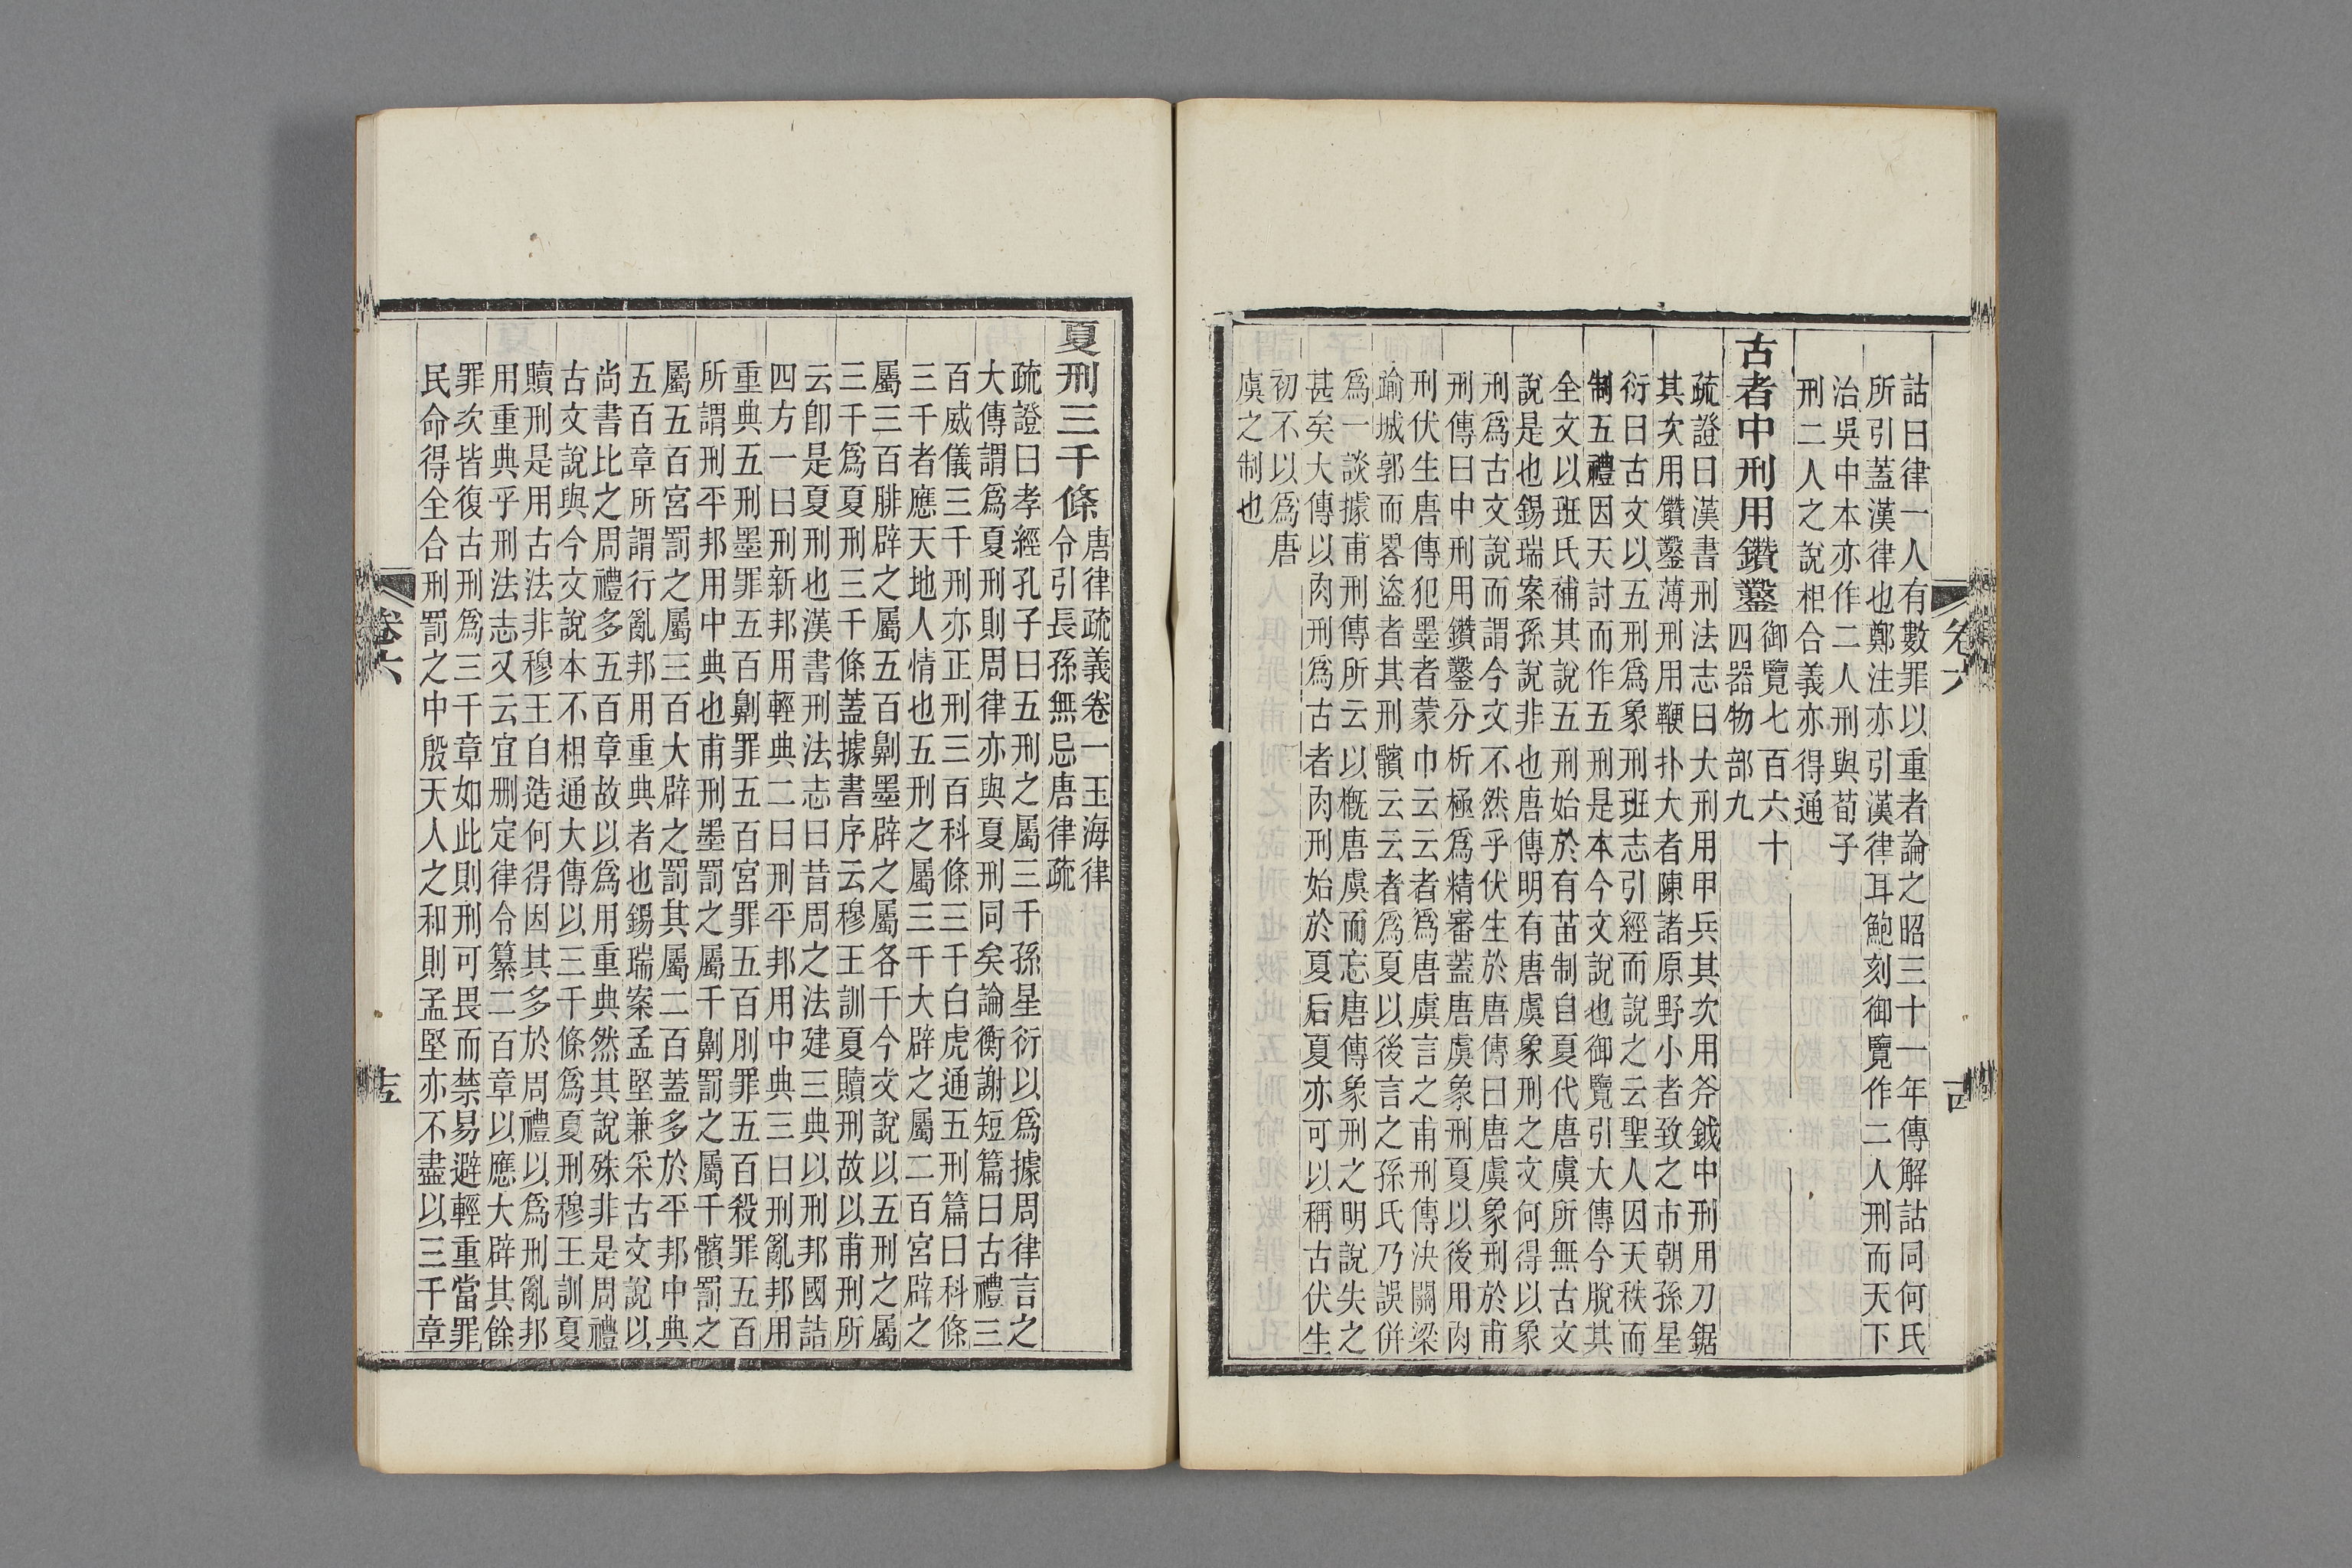 詁曰律一人有數罪以重者論之昭三十一年傳解詁同何氏
所引蓋漢律也鄭注亦引漢律耳鮑刻御覽作二人刑而天下
治吳中本亦作二人刑與荀子
刑二人之說相合義亦得通
古者中刑用鑽鑿
御覽七百六十
四器物部九
疏證曰漢書刑法志曰大刑用甲兵其次用斧鉞中刑用刀鋸
其次用鑽鑿薄刑用鞭扑大者陳諸原野小者致之市朝孫星
衍曰古文以五刑爲象刑班志引經而說之云聖人因天秩而
制五禮因天討而作五刑是本今文說也御覽引大傳今脫其
全文以班氏補其說五刑始於有苗制自夏代唐虞所無古文
說是也錫瑞案孫說非也唐傳明有唐虞象刑之文何得以象
刑爲古文說而謂今文不然乎伏生於唐傳曰唐虞象刑於甫
刑傳曰中刑用鑽鑿分析極爲精審蓋唐虞象刑夏以後用肉
刑伏生唐傳犯墨者蒙巾云云者爲唐虞言之甫刑傳決關梁
踰城郭而畧盜者其刑髕云云者爲夏以後言之孫氏乃誤併
爲一談據甫刑傳所云以概唐虞而忘唐傳象刑之明說失之
甚矣大傳以肉刑爲古者肉刑始於夏后夏亦可以稱古伏生
初不以爲唐
虞之制也
夏刑三千條
唐律疏義卷一玉海律
令引長孫無忌唐律疏
疏證曰孝經孔子曰五刑之屬三千孫星衍以爲據周律言之
大傳謂爲夏刑則周律亦與夏刑同矣論衡謝短篇曰古禮三
百威儀三千刑亦正刑三百科條三千白虎通五刑篇曰科條
三千者應天地人情也五刑之屬三千大辟之屬二百宮辟之
屬三百腓辟之屬五百劓墨辟之屬各千今文說以五刑之屬
三千爲夏刑三千條蓋據書序云穆王訓夏贖刑故以甫刑所
云卽是夏刑也漢書刑法志曰昔周之法建三典以刑邦國詰
四方一曰刑新邦用輕典二曰刑平邦用中典三曰刑亂邦用
重典五刑墨罪五百劓罪五百宮罪五百刖罪五百殺罪五百
所謂刑平邦用中典也甫刑墨罰之屬千劓罰之屬千髕罰之
屬五百宮罰之屬三百大辟之罰其屬二百蓋多於平邦中典
五百章所謂行亂邦用重典者也錫瑞案孟堅兼采古文說以
尚書比之周禮多五百章故以爲用重典然其說殊非是周禮
古文說與今文說本不相通大傳以三千條爲夏刑穆王訓夏
贖刑是用古法非穆王自造何得因其多於周禮以爲刑亂邦
用重典乎刑法志又云宜刪定律令纂二百章以應大辟其餘
罪次皆復古刑爲三千章如此則刑可畏而禁易避輕重當罪
民命得全合刑罰之中殷天人之和則孟堅亦不盡以三千章
卷六
卷六